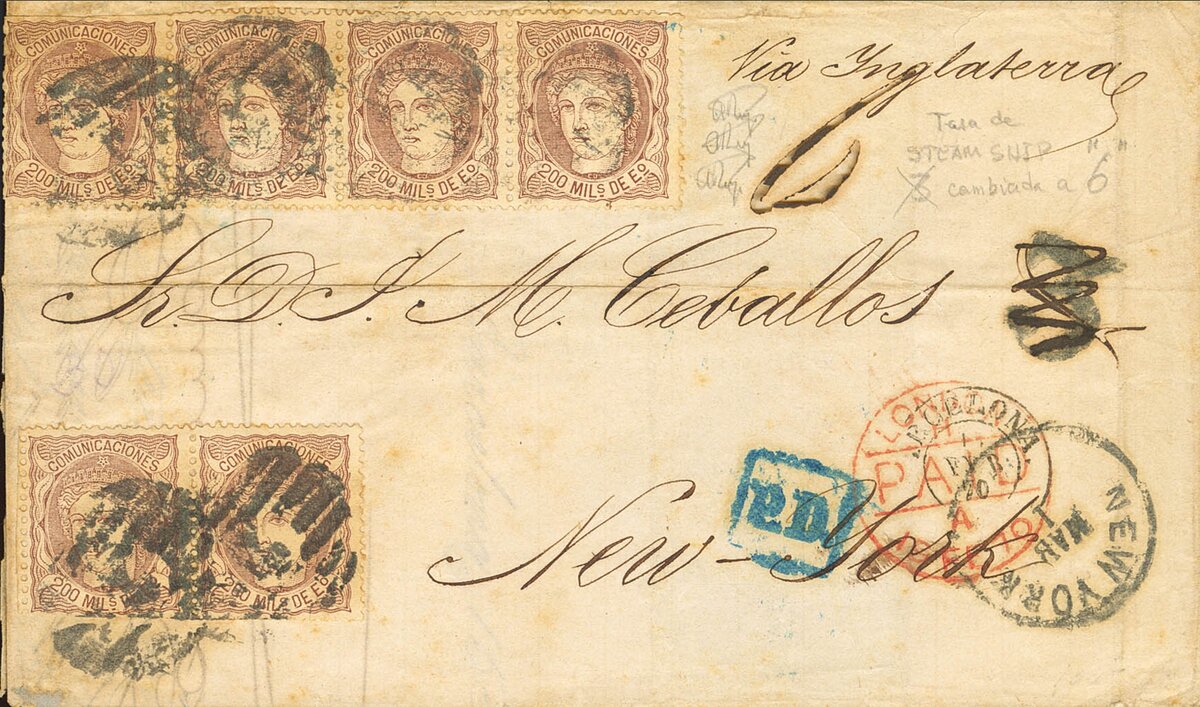 COMUNICACIONES COMUNICACIONES COMUNICACIONES COMUNICACIONES
200 MILS DE Eº 200 MILS DE Eº 200 MILS DE Eº 200 MILS DE Eº
Via Inglaterra
6
Tasa de
STEAM SHIP " "
3 cambiada a 6
Sr. D. J. M. Ceballos
COMUNICACIONES COMUNICACIONES
200 MILS DE Eº 200 MILS DE Eº
New-York
P.D.
PAID
A
70
NEW YORK
MAR